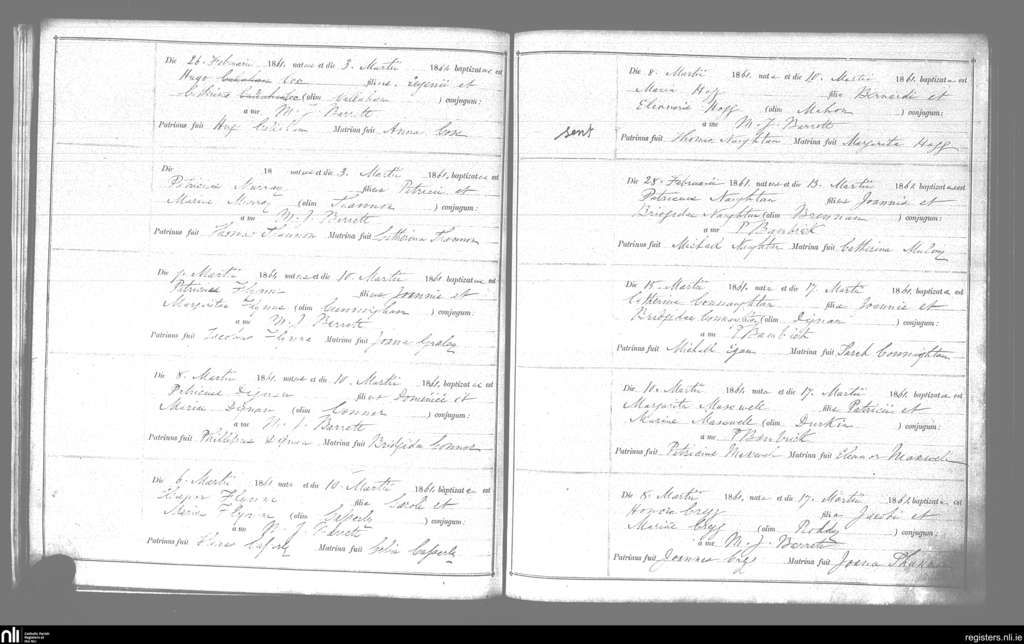 Die 26. Februarii 1861. natus et die 3. Martii 1861 baptizatus est
Hugo Cox filius Eugenii et
(olim Callahan ) conjugum:
a me M. J. Barrett
Patrinus fuit Hug Matrina fuit Anna Cox
Die 18 natus et die 3. Martii 1861, baptizatus est
Patricius Murray filius Patricii et
Mariae Murray (olim Thannon ) conjugum:
a me M. J. Barrett
Patrinus fuit Thomas Thannon Matrina fuit Catherina Thannon
Die 1. Martii 1861 natus et die 10. Martii 1861 baptizatus est
Patricius Flynn filius Joannis et
Margarita Flynn (olim Cunningham ) conjugum:
a me M. J. Barrett
Patrinus fuit Jacobus Flynn Matrina fuit Joanna
Die 8. Martii 1861. natus et die 10. Martii 1861, baptizatus est
Patricius Dignan filius Dominici et
Maria Dignan (olim Connor ) conjugum:
a me M. J. Barrett
Patrinus fuit Phillipus Dignan Matrina fuit Bridgida Connor
Die 6. Martii 1861 nata et die 10. Martii 1861. baptizata est
Flynn filia et
Maria Flynn (olim ) conjugum:
a me M. J. Barrett
Patrinus fuit Matrina fuit Celia
Die 8. Martii 1861. nata et die 10. Martii 1861. baptizata est
Maria Hoff filia Bernardi et
Eleanoris Hoff (olim Mahon ) conjugum:
a me M. J. Barrett
sent
Patrinus fuit Thomas Naughton Matrina fuit Margarita Hoff
Die 28. Februarii 1861. natus et die 13. Martii 1861. baptizatus est
Patricius Naughton filius Joannis et
Bridgidae Naughton (olim Brennan ) conjugum:
a me P Banbick
Patrinus fuit Michael Naughton Matrina fuit Catherina
Die 15. Martii 1861. nata et die 17. Martii 1861. baptizata est
Catherina Connaughton filia Joannis et
Bridgidae Connaughton (olim Dignan ) conjugum:
a me P Banbick
Patrinus fuit Michael Egan Matrina fuit Sarah Connaughton
Die 10. Martii 1861. nata et die 17. Martii 1861. baptizata est
Margarita Maxwell filia Patricii et
Mariae Maxwell (olim Durkin ) conjugum:
a me P Banbick
Patrinus fuit Patricius Maxwell Matrina fuit Eleanor Maxwell
Die 15. Martii 1861, nata et die 17. Martii 1861, baptizata est
Honoria Cregg filia Jacobi et
Mariae Cregg (olim Roddy ) conjugum:
a me M. J. Barrett
Patrinus fuit Joannes Matrina fuit Joana
nli
Catholic Parish
Registers at
the NLI
registers.nli.ie